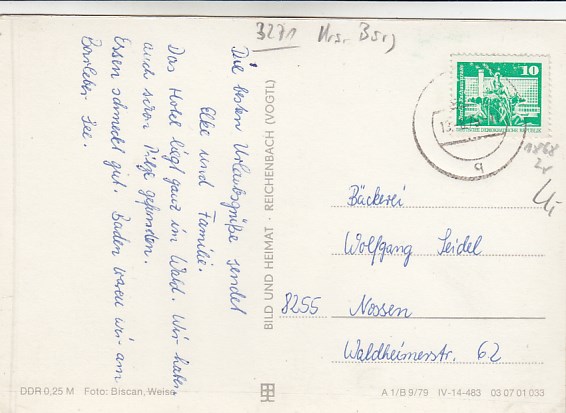 3271 Krs. Burg
Die besten Urlaubsgrüße sendet
Elke und Familie.
Das Hotel liegt ganz im Wald. Wir haben
auch schon Pilze gefunden.
Essen schmeckt gut. Baden waren wir am
See.
BILD UND HEIMAT · REICHENBACH (VOGTL)
10
DEUTSCHE DEMOKRATISCHE REPUBLIK
Bäckerei
Wolfgang Seidel
8255 Nossen
Waldheimerstr. 62
DDR 0,25 M Foto: Biscan, Weise
A 1/B 9/79 IV-14-483 03 07 01 033